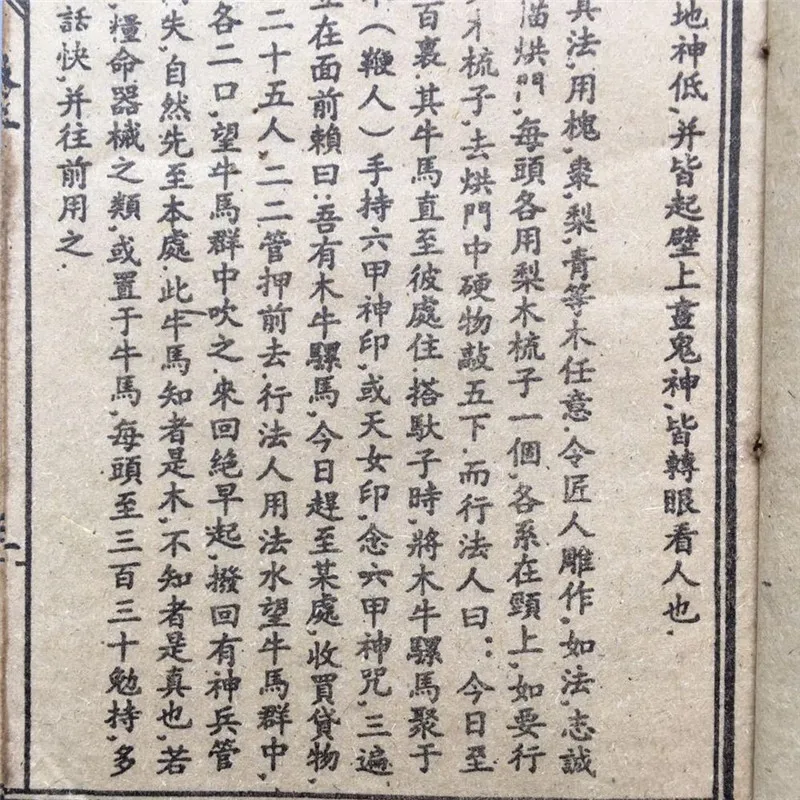 地神低、并皆起壁上畫鬼神、皆轉眼看人也.
其法、用槐、棗、梨、青等木任意、令匠人雕作、如法、志誠
描烘門、每頭各用梨木梳子一個、各系在頸上、如要行
木梳子、去烘門中硬物敲五下.而行法人曰：.今日至
百裏.其牛馬直至彼處住.搭馱子時、將木牛騾馬聚于
（鞭人）手持六甲神印、或天女印、念六甲神咒、三遍
立在面前賴曰.吾有木牛騾馬、今日趕至某處、收買貸物、
二十五人、二二管押前去.行法人用法水望牛馬群中、
各二口、望牛馬群中吹之.來回絕早起、撥回有神兵管
失、自然先至本處.此牛馬知者是木、不知者是真也、若
糧命器械之類、或置于牛馬、每頭至三百三十勉持、多
話快、并往前用之.